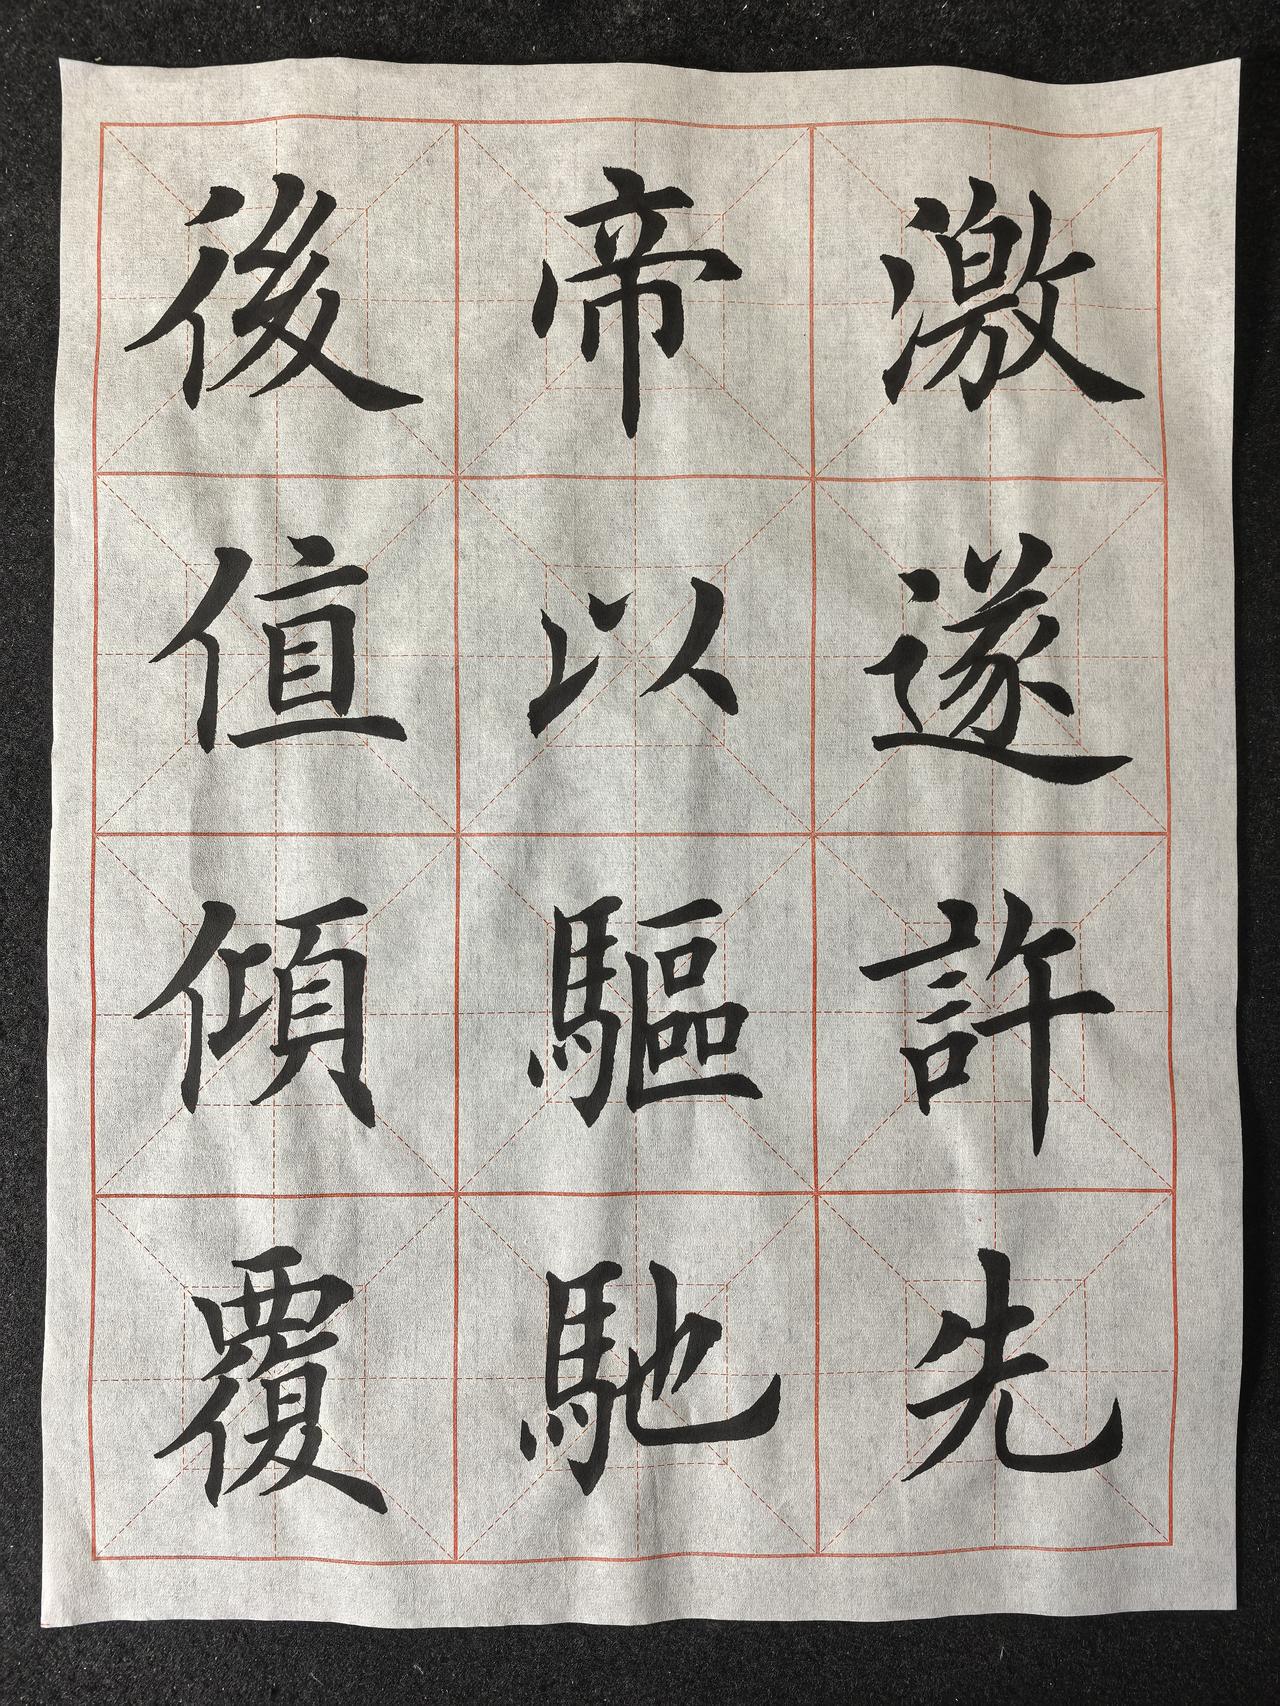 激遂許先
帝以驅馳
後值傾覆